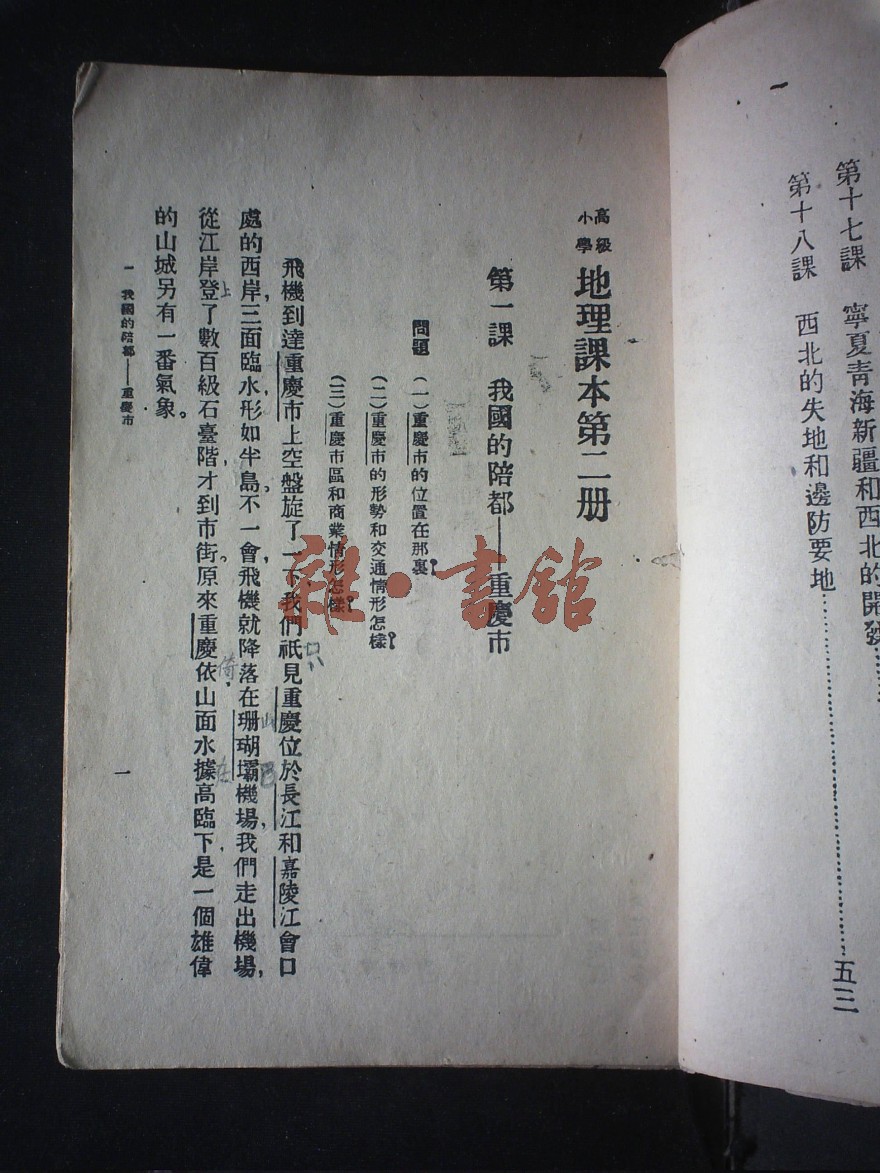 第十七課　寧夏青海新疆和西北的開發…………
第十八課　西北的失地和邊防要地………………五三
高級小學　地理課本第二册
第一課　我國的陪都——重慶市
問題　（一）重慶市的位置在那裏？
（二）重慶市的形勢和交通情形怎樣？
（三）重慶市區和商業情形怎樣？
飛機到達重慶市上空，盤旋了一下，我們祇見重慶位於長江和嘉陵江會口
處的西岸，三面臨水，形如半島，不一會，飛機就降落在珊瑚壩機場，我們走出機場，
從江岸登了數百級石臺階，才到市街。原來重慶依山面水，據高臨下，是一個雄偉
的山城，另有一番氣象。
一　我國的陪都——重慶市
一
只
上
倚
雜·書館